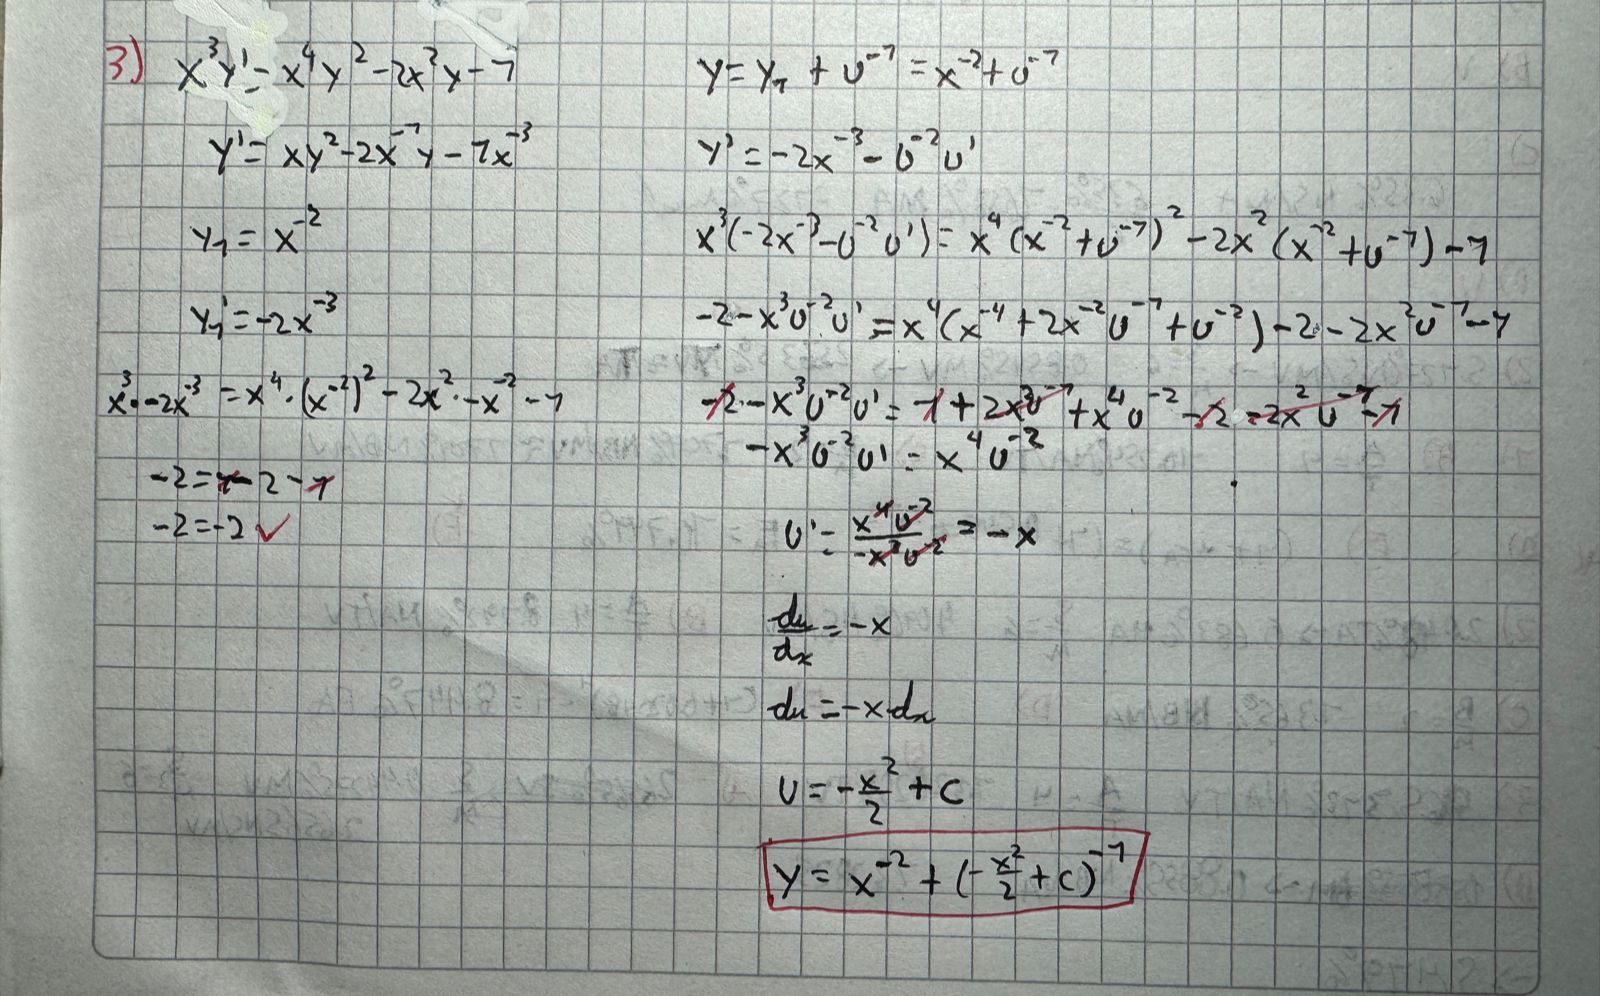 3) x³y' = x⁴y² - 2x²y - 1
y' = xy² - 2x⁻¹y - 1x⁻³
y₁ = x⁻²
y₁' = -2x⁻³
x³·-2x⁻³ = x⁴·(x⁻²)² - 2x²·-x⁻² - 1
-2 = 1 - 2 - 1
-2 = -2 ✓
y = y₁ + u⁻¹ = x⁻² + u⁻¹
y' = -2x⁻³ - u⁻²u'
x³(-2x⁻³ - u⁻²u') = x⁴(x⁻² + u⁻¹)² - 2x²(x⁻² + u⁻¹) - 1
-2 - x³u⁻²u' = x⁴(x⁻⁴ + 2x⁻²u⁻¹ + u⁻²) - 2 - 2x²u⁻¹ - 1
-2 - x³u⁻²u' = 1 + 2x²u⁻¹ + x⁴u⁻² - 2 - 2x²u⁻¹ - 1
-x³u⁻²u' = x⁴u⁻²
u' = x⁴u⁻² / -x³u⁻² = -x
du/dx = -x
du = -x·dx
u = -x²/2 + c
y = x⁻² + (-x²/2 + c)⁻¹